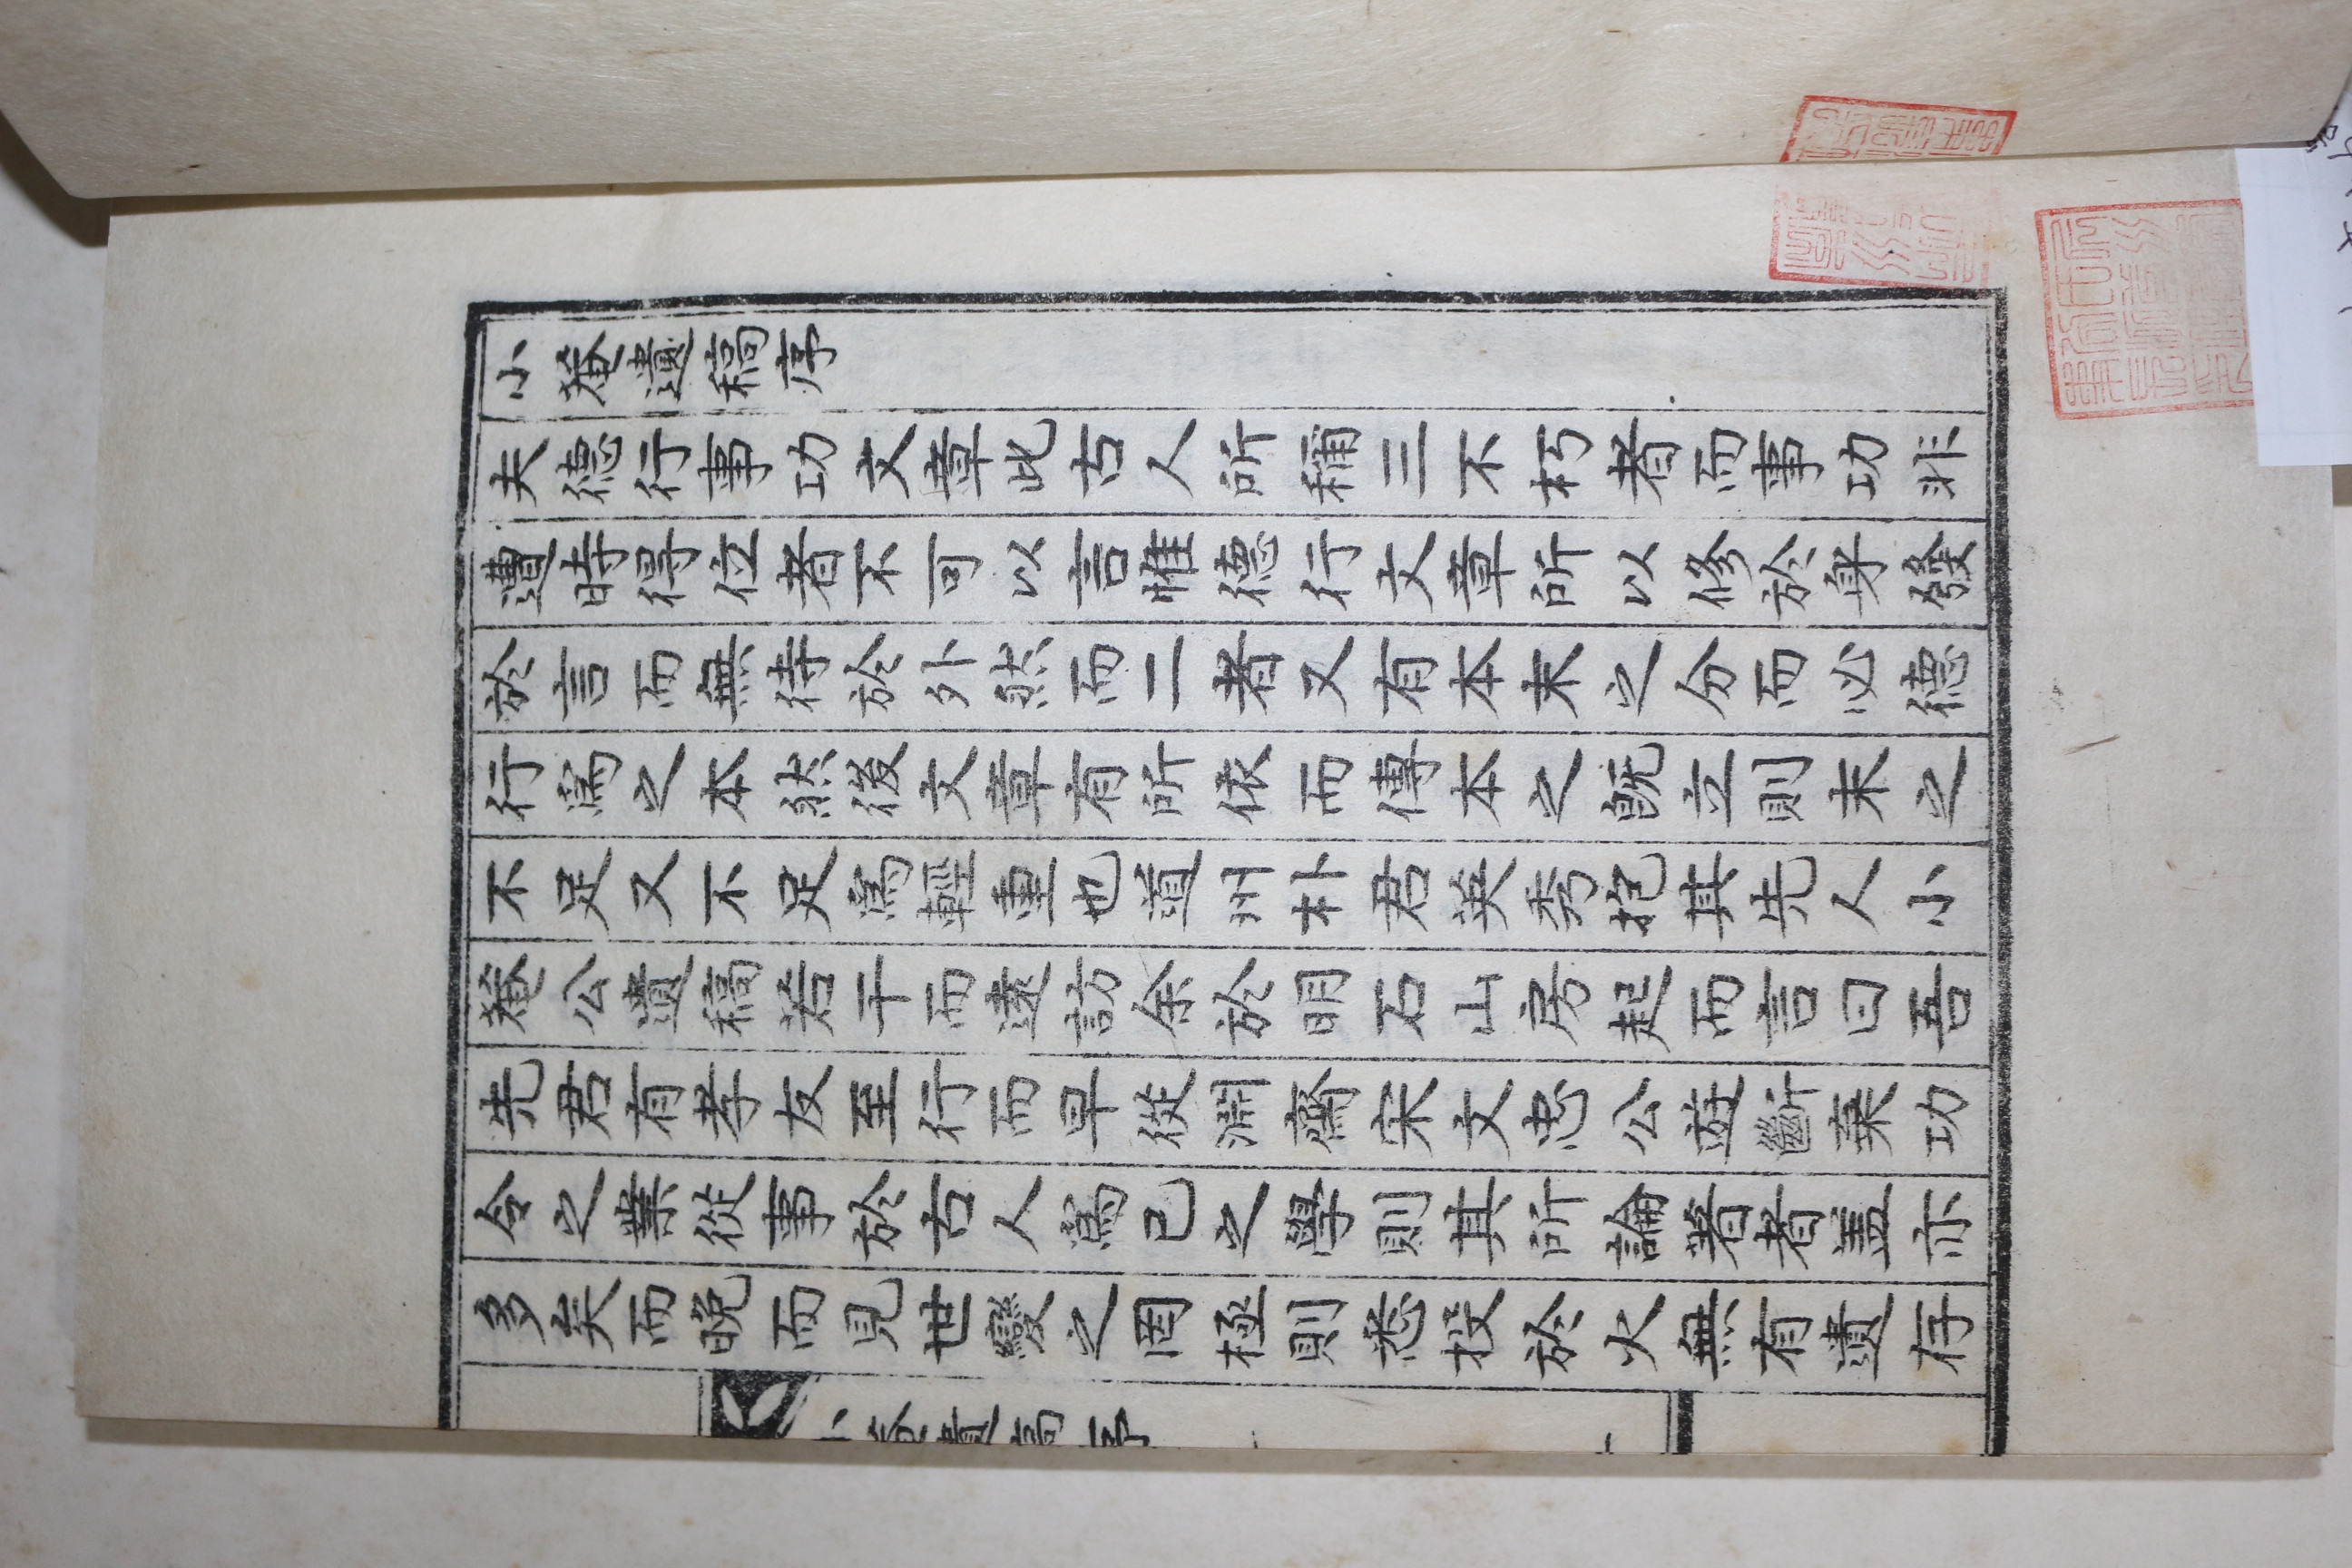 小菴遺稿序
夫德行事功文章此古人所稱三不朽者而事功非
遭時得位者不可以言惟德行文章所以修於身發
於言而無待於外然而二者又有本末之分而必德
行爲之本然後文章有所依而傳本之旣立則末之
不足又不足爲輕重也道州朴君英秀抱其先人小
菴公遺稿若干而遠訪余於明石山房起而言曰吾
先君有孝友至行而早從淵齋宋文忠公遊斷棄功
令之業從事於古人爲己之學則其所論著者盖亦
多矣而晩而見世變之罔極則悉投於火無有遺存
小菴遺稿序